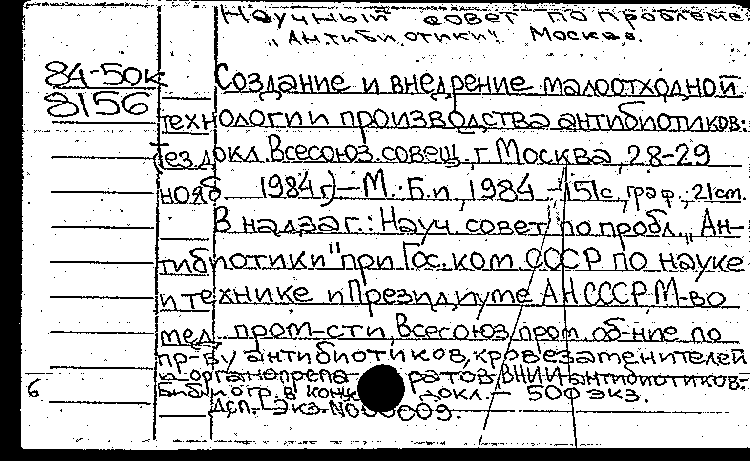 Научный совет по проблеме
„Антибиотики". Москва.
84-50к
8156
Создание и внедрение малоотходной
технологии производства антибиотиков:
Тез. докл. Всесоюз. совещ., г. Москва, 28-29
нояб. 1984 г.) – М.: Б.и, 1984. – 151с., граф.; 21см.
В надзаг.: Науч. совет по пробл. „Ан-
тибиотики" при Гос. ком. СССР по науке
и технике и Президиуме АН СССР, М-во
мед. пром-сти, Всесоюз. пром. об-ние по
пр-ву антибиотиков, кровезаменителей
и органопрепаратов, ВНИИ антибиотиков.-
Библиогр. в конце докл. – 500 экз.
6
ДСП. Экз. N000009.